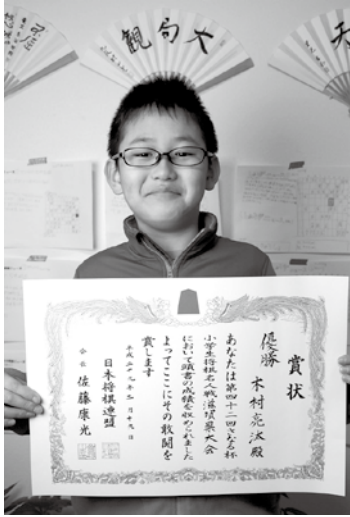 大局観
天
賞状
優勝 木村亮汰殿
あなたは第四十二回さなる杯
小学生将棋名人戦滋賀県大会
において頭書の成績を収められました
よってここにその敢闘を
賞します
平成二十九年 月十九日
日本将棋連盟
会長 佐藤康光